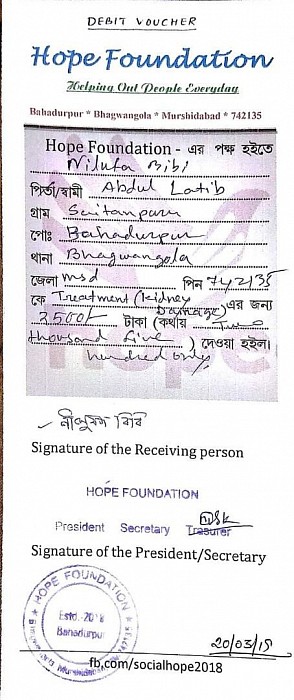 DEBIT VOUCHER
Hope Foundation
Helping Out People Everyday
Bahadurpur * Bhagwangola * Murshidabad * 742135
Hope Foundation - এর পক্ষ হইতে
Nilufa Bibi
পিতা/স্বামী Abdul Latib
গ্রাম
পোঃ Bahadurpur
থানা Bhagwangola
জেলা msd পিন 742135
কে Treatment (Kidney Damage) এর জন্য
2500/- টাকা (কথায় Two
thousand five ) দেওয়া হইল।
hundred only
নীলুফা বিবি
Signature of the Receiving person
HOPE FOUNDATION
President Secretary Tresurer
Signature of the President/Secretary
HOPE FOUNDATION
Estd.-2018
Bahadurpur
20/03/19
fb.com/socialhope2018